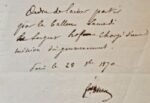 Ordre de laisser partir
par le Ballon Samedi
chargé d'une
mission du gouvernement.
Paris le 28 8bre 1870